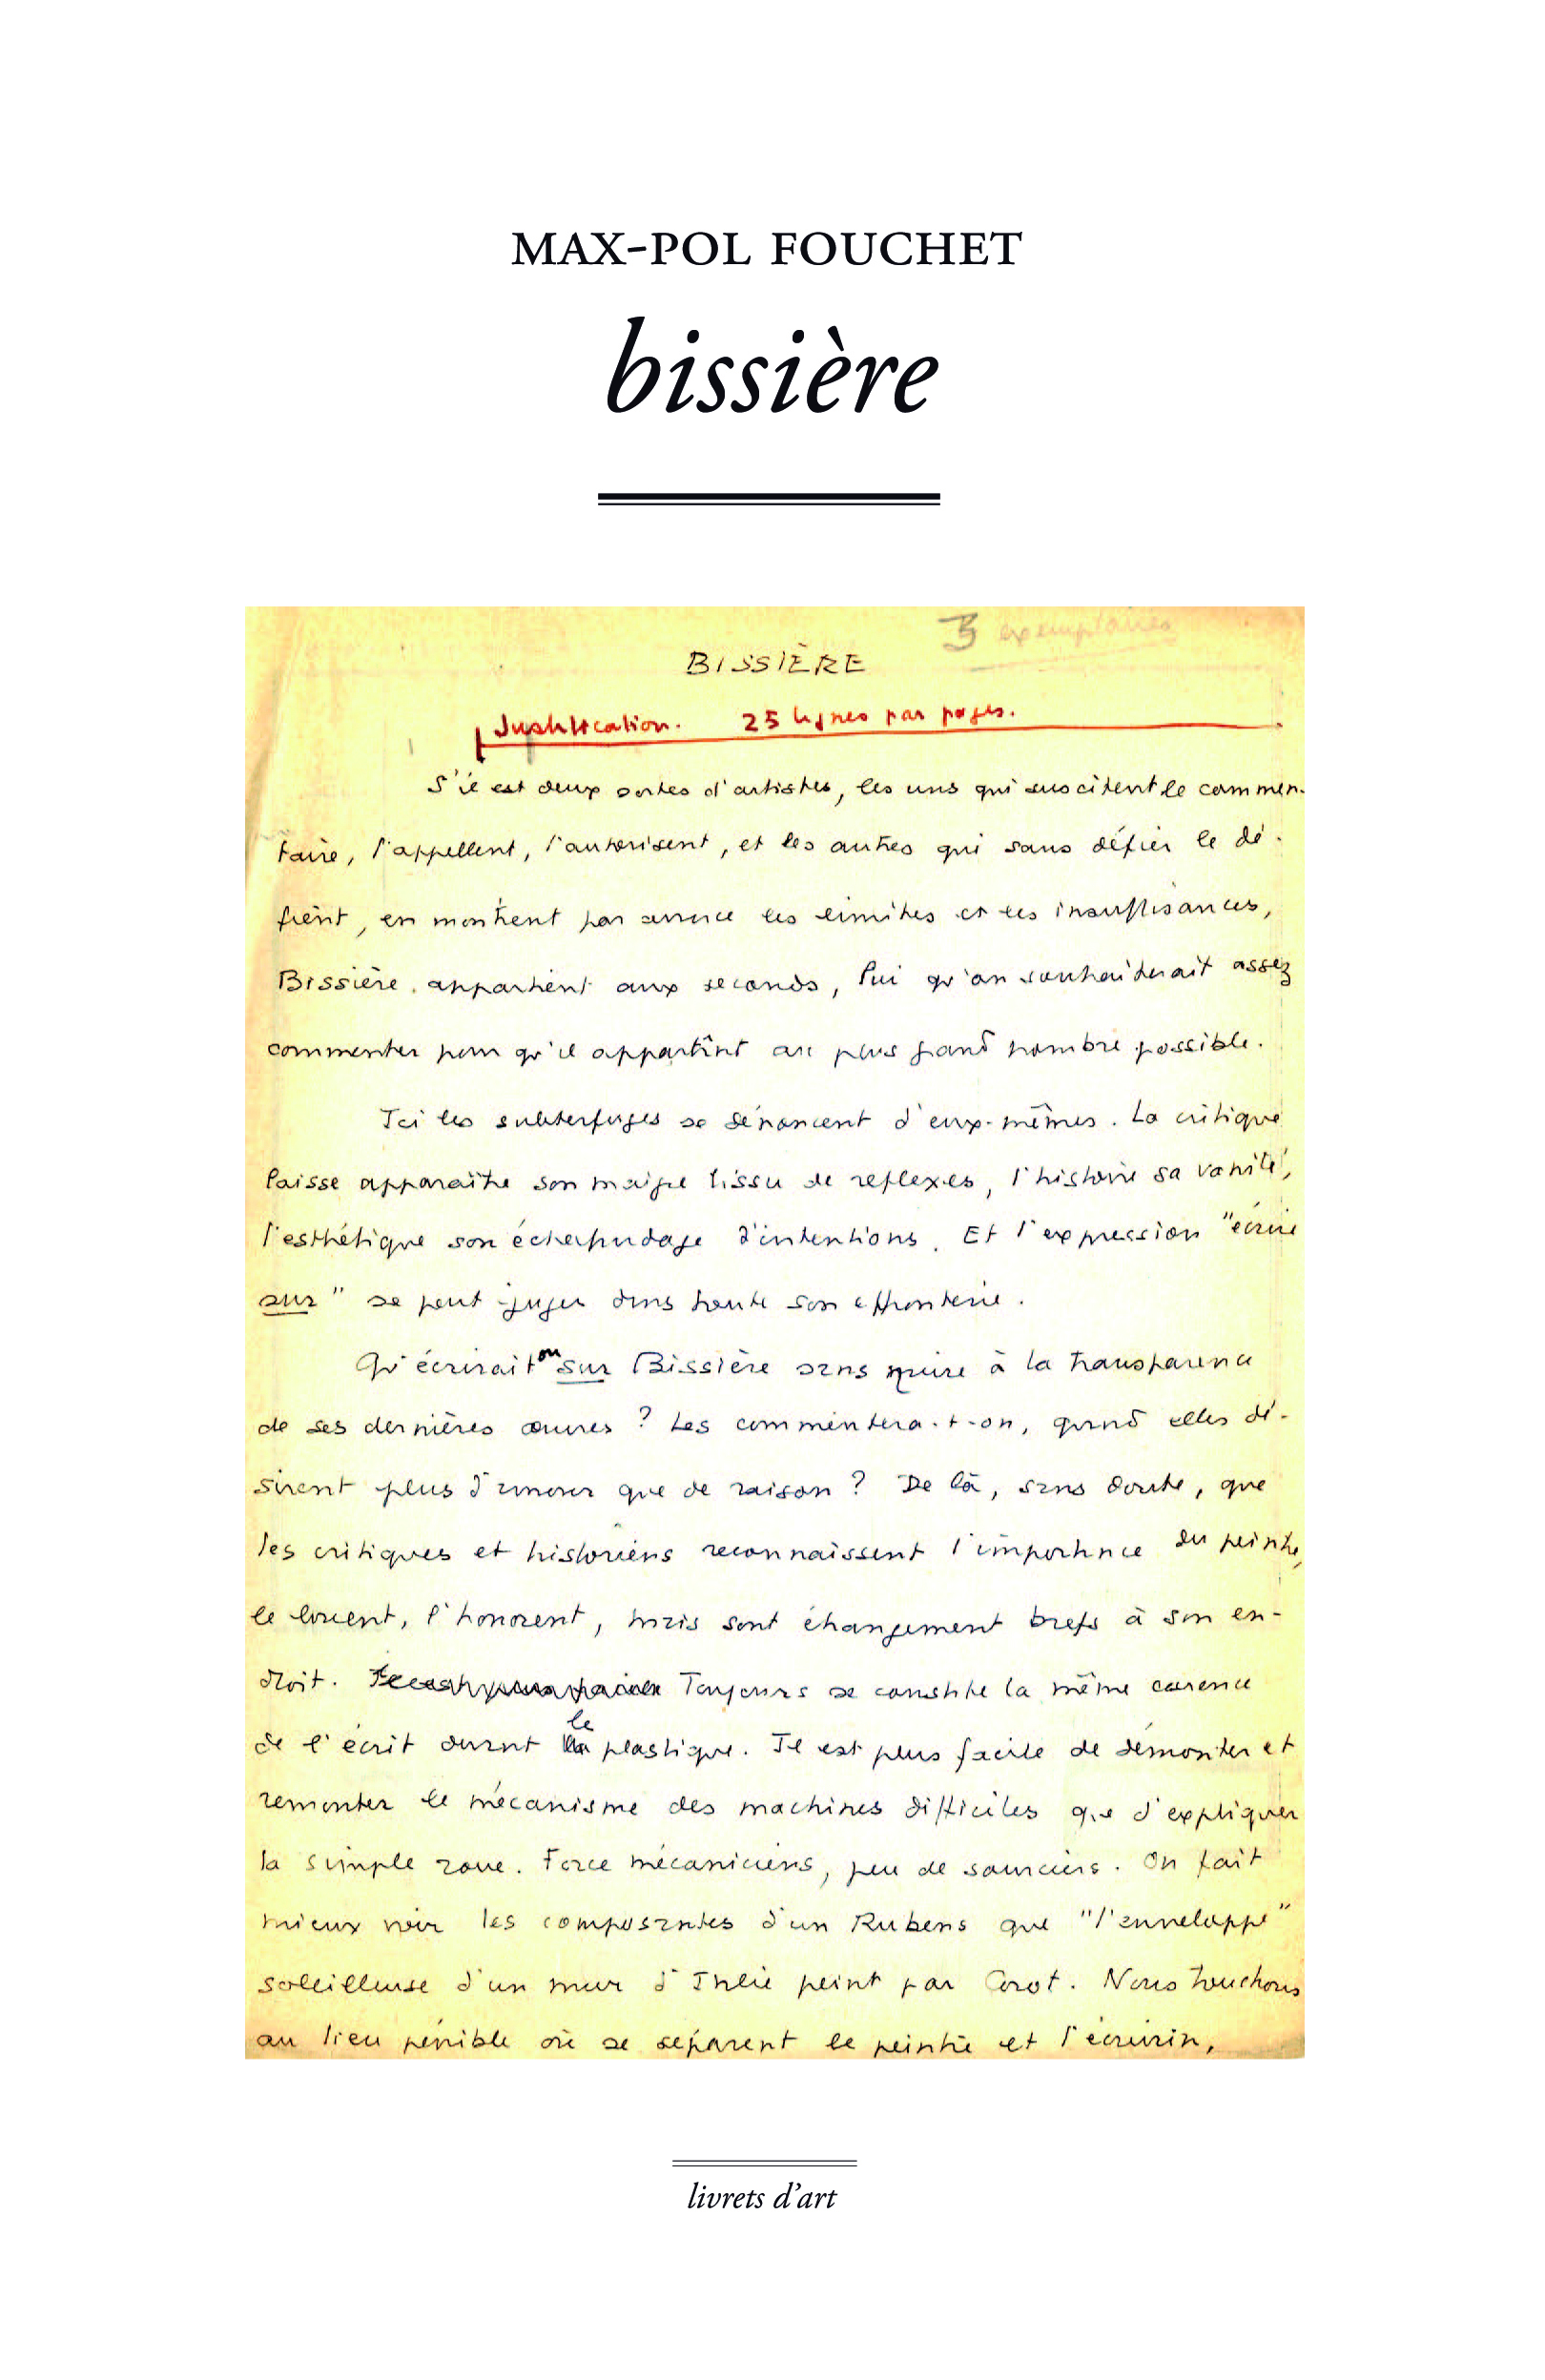 MAX-POL FOUCHET
bissière
3 exemplaires
BISSIÈRE
Justification. 25 lignes par pages.
S'il est deux sortes d'artistes, les uns qui suscitent le commen-
taire, l'appellent, l'autorisent, et les autres qui sans défier le dé-
fient, en montrent par avance les limites et les insuffisances,
Bissière appartient aux seconds, lui qu'on souhaiterait assez
commenter pour qu'il appartînt au plus grand nombre possible.
Ici les subterfuges se dénoncent d'eux-mêmes. La critique
laisse apparaître son maigre tissu de reflexes, l'histoire sa vanité,
l'esthétique son échafaudage d'intentions. Et l'expression "écrire
sur" se peut juger dans toute son effronterie.
Qu'écrirait on sur Bissière sans nuire à la transparence
de ses dernières œuvres ? Les commentera-t-on, quand elles dé-
sirent plus d'amour que de raison ? De là, sans doute, que
les critiques et historiens reconnaissent l'importance du peintre,
le louent, l'honorent, mais sont étrangement brefs à son en-
droit. Toujours se constate la même carence
de l'écrit devant le plastique. Il est plus facile de démonter et
remonter le mécanisme des machines difficiles que d'expliquer
la simple roue. Force mécaniciens, peu de sourciers. On fait
mieux voir les composantes d'un Rubens que "l'enveloppe"
soleilleuse d'un mur d'Italie peint par Corot. Nous touchons
au lieu pénible où se séparent le peintre et l'écrivain,
livrets d'art